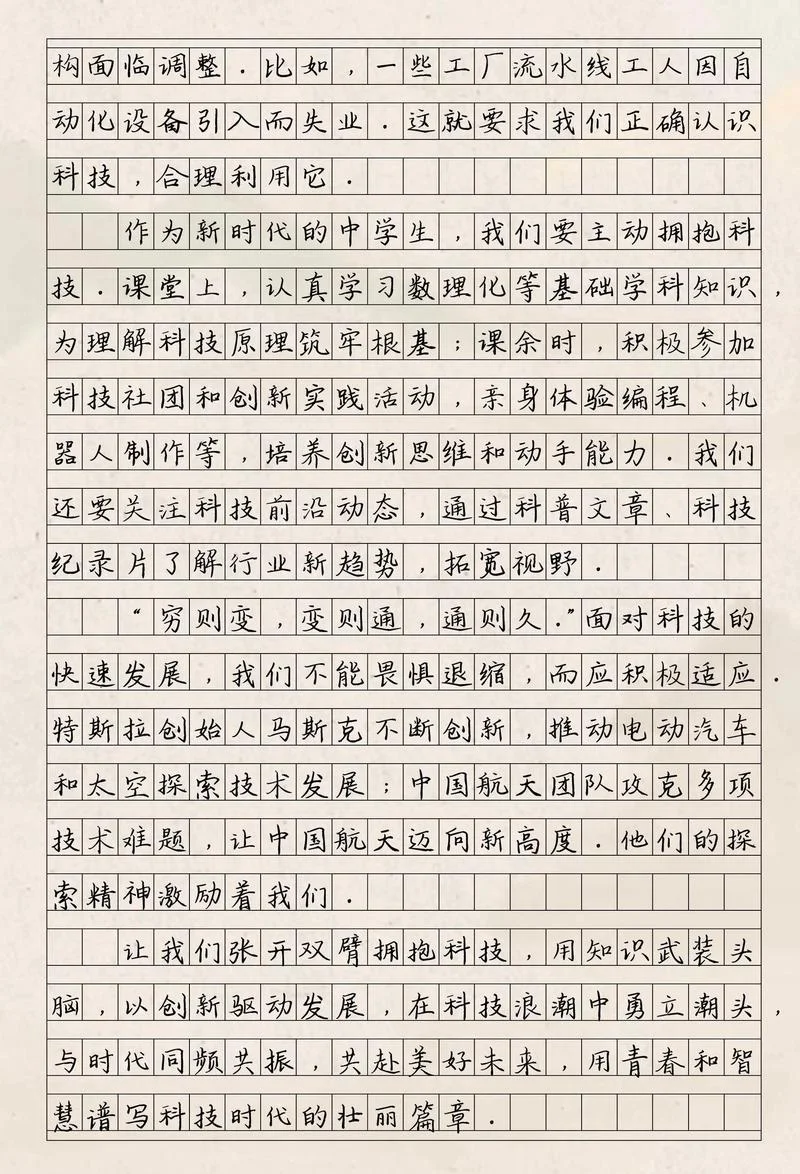 构面临调整.比如,一些工厂流水线工人因自
动化设备引入而失业.这就要求我们正确认识
科技,合理利用它.
作为新时代的中学生,我们要主动拥抱科
技.课堂上,认真学习数理化等基础学科知识,
为理解科技原理筑牢根基;课余时,积极参加
科技社团和创新实践活动,亲身体验编程、机
器人制作等,培养创新思维和动手能力.我们
还要关注科技前沿动态,通过科普文章、科技
纪录片了解行业新趋势,拓宽视野.
“穷则变,变则通,通则久.”面对科技的
快速发展,我们不能畏惧退缩,而应积极适应.
特斯拉创始人马斯克不断创新,推动电动汽车
和太空探索技术发展;中国航天团队攻克多项
技术难题,让中国航天迈向新高度.他们的探
索精神激励着我们.
让我们张开双臂拥抱科技,用知识武装头
脑,以创新驱动发展,在科技浪潮中勇立潮头,
与时代同频共振,共赴美好未来,用青春和智
慧谱写科技时代的壮丽篇章.